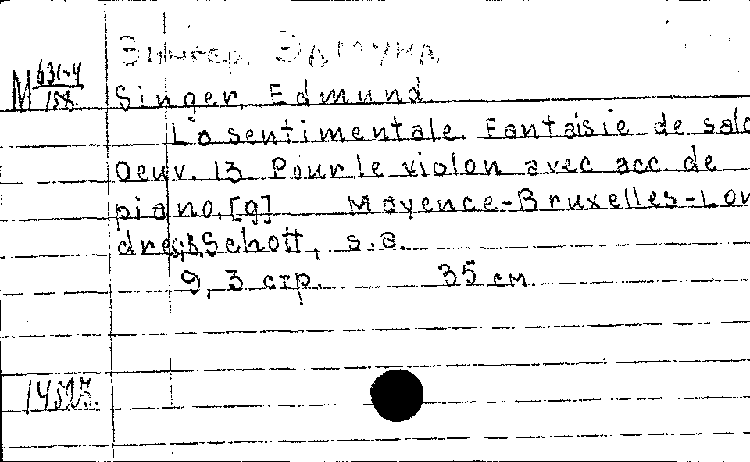 Зингер, Эдмунд
М 631-4
158
Singer, Edmund
La sentimentale. Fantaisie de salo
Oeuv. 13. Pour le violon avec acc. de
piano. [g] Mayence-Bruxelles-Lon
dres, Schott, s.a.
9, 3 стр. 35 см.